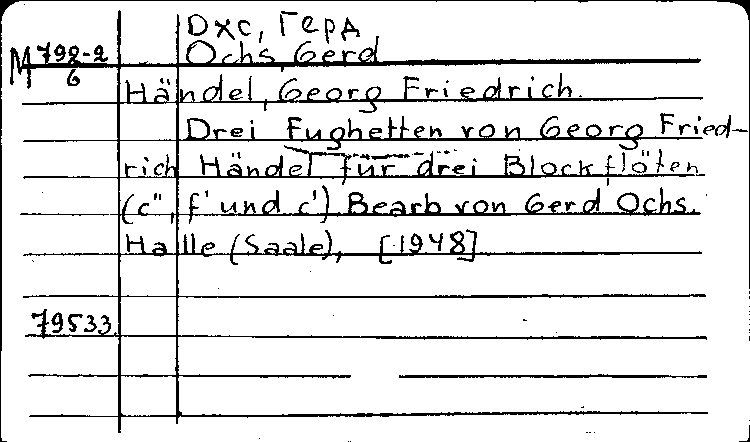 Охс, Герд
M 798-2
6
Ochs, Gerd
Händel, Georg Friedrich.
Drei Fughetten von Georg Fried-
rich Händel für drei Blockflöten
(c", f' und c') Bearb von Gerd Ochs.
Halle (Saale), [1948]
79533